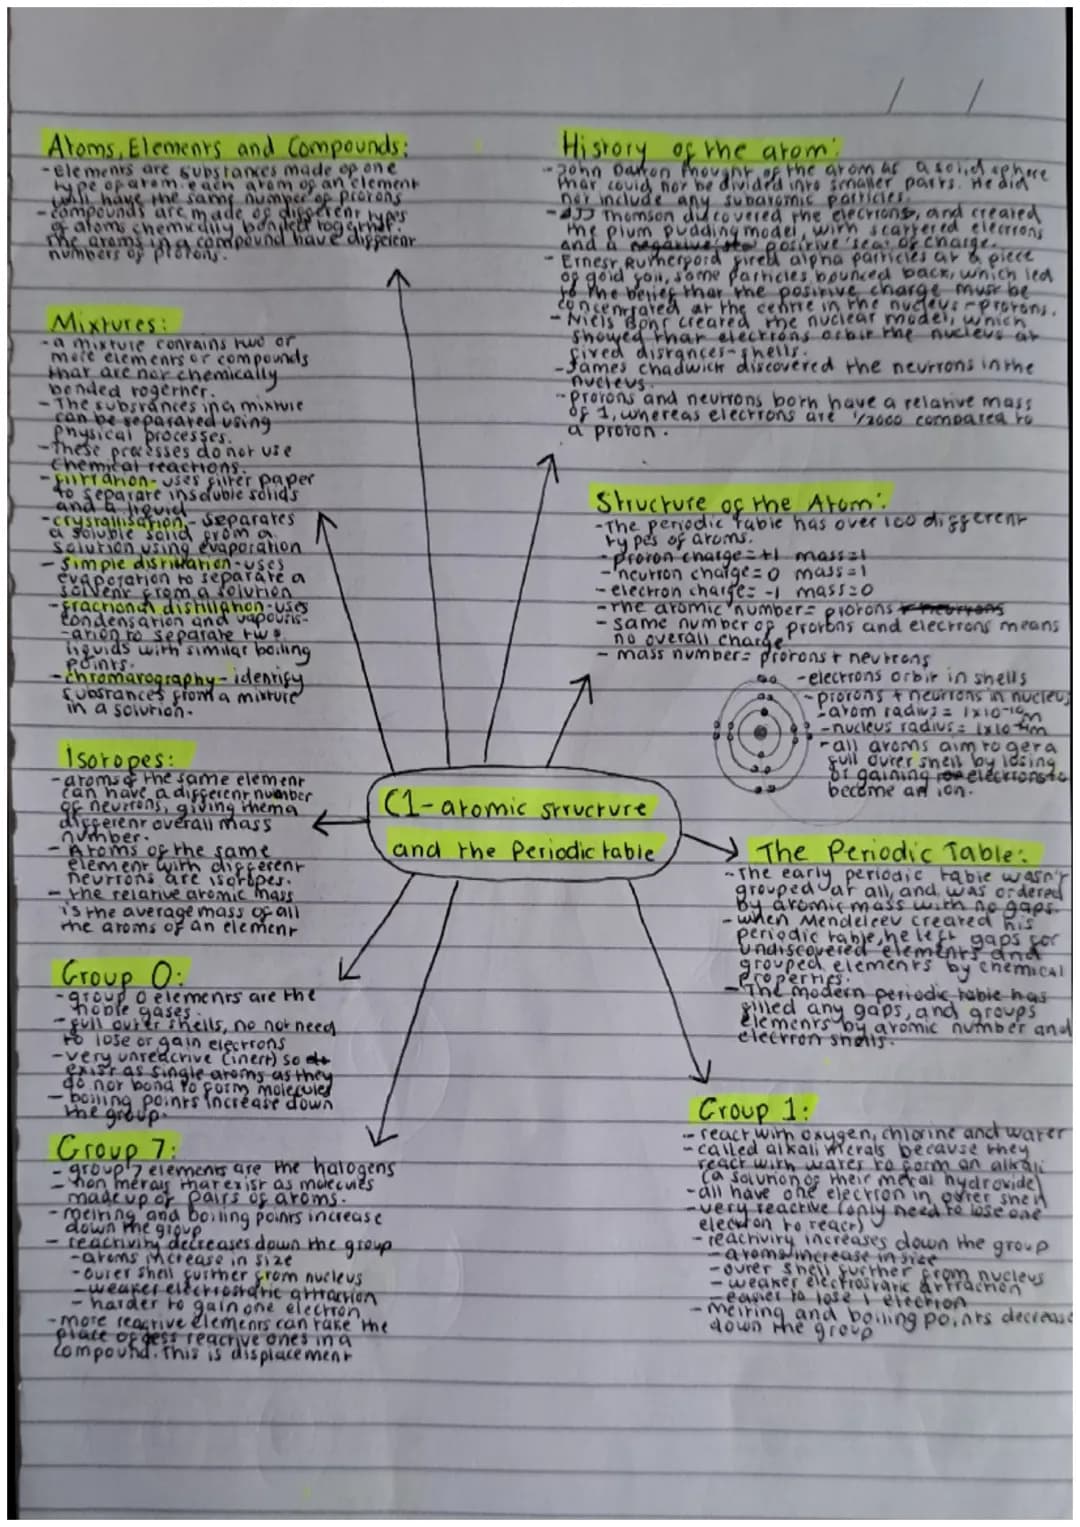 Atoms, Elements and Compounds:
- Elements are substances made of one
type of atom. each atom of an element
will have the same number of protons
- compounds are made of different types
of atoms chemically bonded together.
The atoms in a compound have different
numbers of protons.
Mixtures:
- a mixture contains two or
more elements or compounds
that are not chemically
bonded together.
- The substances in a mixture
can be separated using
physical processes.
- These processes do not use
chemical reactions.
- filtration - uses filter paper
to separate insoluble solids
and a liquid
- crystallisation - separates
a soluble solid from a
solution using evaporation
- simple distillation - uses
evaporation to separate a
solvent from a solution
- fractional distillation - uses
condensation and vapouris-
-ation to separate two
liquids with similar boiling
points.
- chromatography - identify
substances from a mixture
in a solution.
Isotopes:
- atoms of the same element
can have a different number
of neutrons, giving them a
different overall mass
number.
- Atoms of the same
element with different
neutrons are isotopes.
- the relative atomic mass
is the average mass of all
the atoms of an element
Group 0:
- group 0 elements are the
noble gases.
- full outer shells, no not need
to lose or gain electrons
- very unreactive (inert) so
exist as single atoms as they
do not bond to form molecules
- boiling points increase down
the group.
Group 7:
- group 7 elements are the halogens
- non metals that exist as molecules
made up of pairs of atoms.
- melting and boiling points increase
down the group
- reactivity decreases down the group
- atoms increase in size
- outer shell further from nucleus
- weaker electrostatic attraction
- harder to gain one electron
- more reactive elements can take the
place of less reactive ones in a
compound. This is displacement
C1 - atomic structure
and the Periodic table
History of the atom:
- John Dalton thought of the atom as a solid sphere
that could not be divided into smaller parts. He did
not include any subatomic particles.
- JJ Thomson discovered the electrons, and created
the plum pudding model, with scattered electrons
and a negative sea positive 'sea' of charge.
- Ernest Rutherford fired alpha particles at a piece
of gold foil, some particles bounced back, which led
to the belief that the positive charge must be
concentrated at the centre in the nucleus - protons.
- Niels Bohr created the nuclear model, which
showed that electrons orbit the nucleus at
fixed distances - shells.
- James chadwick discovered the neutrons in the
nucleus.
- protons and neutrons both have a relative mass
of 1, whereas electrons are 1/2000 compared to
a proton.
Structure of the Atom:
- The periodic table has over 100 different
types of atoms.
- proton charge = +1 mass = 1
- neutron charge = 0 mass = 1
- electron charge = -1 mass = 0
- the atomic number = protons + neutrons
- same number of protons and electrons means
no overall charge
- mass number = protons + neutrons
- electrons orbit in shells
- protons + neutrons in nucleus
- atom radius = 1x10
- nucleus radius = 1x10
- all atoms aim to get a
full outer shell by losing
or gaining electrons to
become an ion.
The Periodic Table:
- The early periodic table wasn't
grouped at all, and was ordered
by atomic mass with no gaps.
- when Mendeleev created his
periodic table, he left gaps for
undiscovered elements and
grouped elements by chemical
properties.
- The modern periodic table has
filled any gaps, and groups
elements by atomic number and
electron shells.
Group 1:
- react with oxygen, chlorine and water
- called alkali metals because they
react with water to form an alkali
(a solution of their metal hydroxide)
- all have one electron in outer shell
- very reactive (only need to lose one
electron to react)
- reactivity increases down the group
- atoms increase in size
- outer shell further from nucleus
- weaker electrostatic attraction
- easier to lose 1 electron
- melting and boiling points decrease
down the group